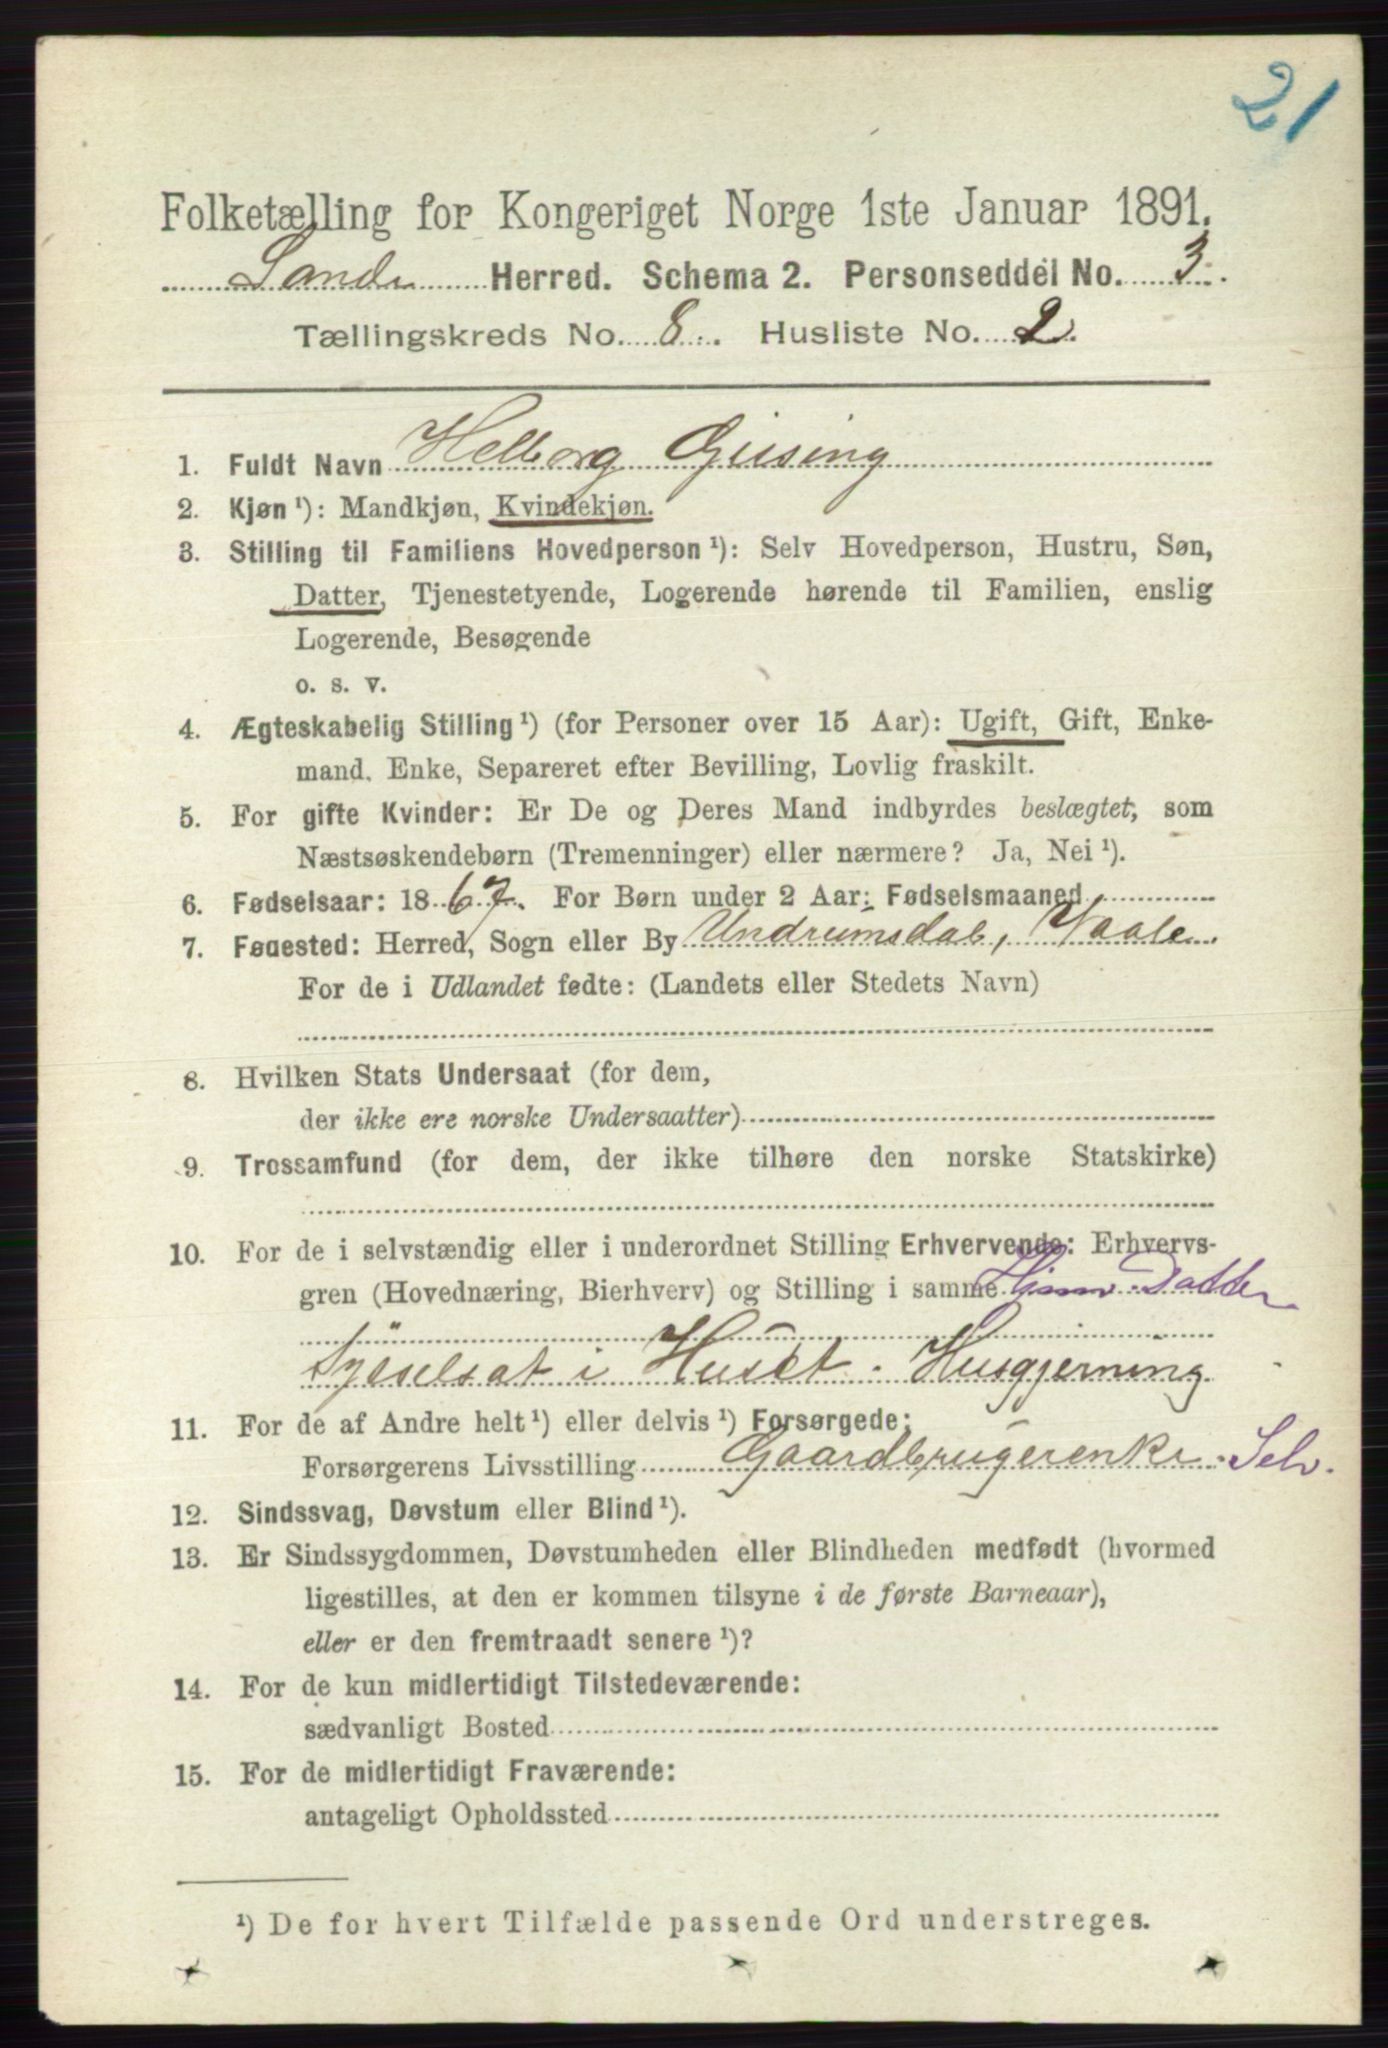 21
Folketælling for Kongeriget Norge 1ste Januar 1891.
Sande Herred. Schema 2. Personseddel No. 3.
Tællingskreds No. 8. Husliste No. 2.
1. Fuldt Navn Helborg Giising
2. Kjøn ¹): Mandkjøn, Kvindekjøn.
3. Stilling til Familiens Hovedperson ¹): Selv Hovedperson, Hustru, Søn,
Datter, Tjenestetyende, Logerende hørende til Familien, enslig
Logerende, Besøgende
o. s. v.
4. Ægteskabelig Stilling ¹) (for Personer over 15 Aar): Ugift, Gift, Enke-
mand, Enke, Separeret efter Bevilling, Lovlig fraskilt.
5. For gifte Kvinder: Er De og Deres Mand indbyrdes beslægtet, som
Næstsøskendebørn (Tremenninger) eller nærmere? Ja, Nei ¹).
6. Fødselsaar: 1867. For Børn under 2 Aar: Fødselsmaaned
7. Fødested: Herred, Sogn eller By Undrumsdal, Vaale.
For de i Udlandet fødte: (Landets eller Stedets Navn)
8. Hvilken Stats Undersaat (for dem,
der ikke ere norske Undersaatter)
9. Trossamfund (for dem, der ikke tilhøre den norske Statskirke)
10. For de i selvstændig eller i underordnet Stilling Erhvervende: Erhvervs-
gren (Hovednæring, Bierhverv) og Stilling i samme Hjemv. Datter
sysselsat i Huset. Husgjerning
11. For de af Andre helt ¹) eller delvis ¹) Forsørgede:
Forsørgerens Livsstilling Gaardbrugerenke. Selv.
12. Sindssvag, Døvstum eller Blind ¹).
13. Er Sindssygdommen, Døvstumheden eller Blindheden medfødt (hvormed
ligestilles, at den er kommen tilsyne i de første Barneaar),
eller er den fremtraadt senere ¹)?
14. For de kun midlertidigt Tilstedeværende:
sædvanligt Bosted
15. For de midlertidigt Fraværende:
antageligt Opholdssted
¹) De for hvert Tilfælde passende Ord understreges.